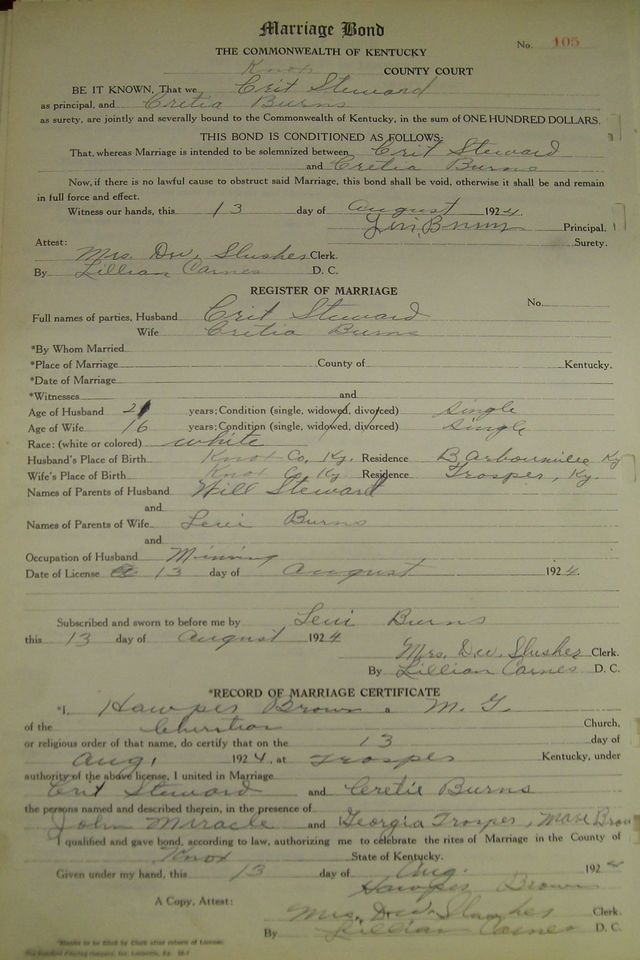 Marriage Bond
No. 105
THE COMMONWEALTH OF KENTUCKY
Knox COUNTY COURT
BE IT KNOWN, That we Crit Steward
as principal, and Cretia Burns
as surety, are jointly and severally bound to the Commonwealth of Kentucky, in the sum of ONE HUNDRED DOLLARS.
THIS BOND IS CONDITIONED AS FOLLOWS:
That, whereas Marriage is intended to be solemnized between Crit Steward
and Cretia Burns
Now, if there is no lawful cause to obstruct said Marriage, this bond shall be void, otherwise it shall be and remain
in full force and effect.
Witness our hands, this 13 day of August 1924.
Burns Principal.
Surety.
Attest:
Mrs. D.W. Slusher Clerk.
By Lillian Carnes D. C.
REGISTER OF MARRIAGE
No.
Full names of parties, Husband Crit Steward
Wife Cretia Burns
*By Whom Married
*Place of Marriage County of Kentucky.
*Date of Marriage
*Witnesses and
Age of Husband 21 years; Condition (single, widowed, divorced) Single
Age of Wife 16 years; Condition (single, widowed, divorced) Single
Race: (white or colored) white
Husband's Place of Birth Knox Co, Ky. Residence Barbourville Ky
Wife's Place of Birth Knox Co, Ky Residence Trosper, Ky.
Names of Parents of Husband Will Steward
and
Names of Parents of Wife Levi Burns
and
Occupation of Husband Mining
Date of License 13 day of August 1924.
Subscribed and sworn to before me by Levi Burns
this 13 day of August 1924
Mrs. D.W. Slusher Clerk.
By Lillian Carnes D. C.
*RECORD OF MARRIAGE CERTIFICATE
*I, Hawper Brown a M. G.
of the Christian Church,
or religious order of that name, do certify that on the 13 day of
Aug, 1924, at Trosper Kentucky, under
authority of the above license, I united in Marriage
Crit Steward and Cretie Burns
the persons named and described therein, in the presence of
John Miracle and Georgia Trosper, Brown
I qualified and gave bond, according to law, authorizing me to celebrate the rites of Marriage in the County of
Knox State of Kentucky.
Given under my hand, this 13 day of Aug. 1924
Hawper Brown
A Copy, Attest: Mrs. D.W. Slusher Clerk.
By Lillian Carnes D. C.
*Blanks to be filled by Clerk after return of License.